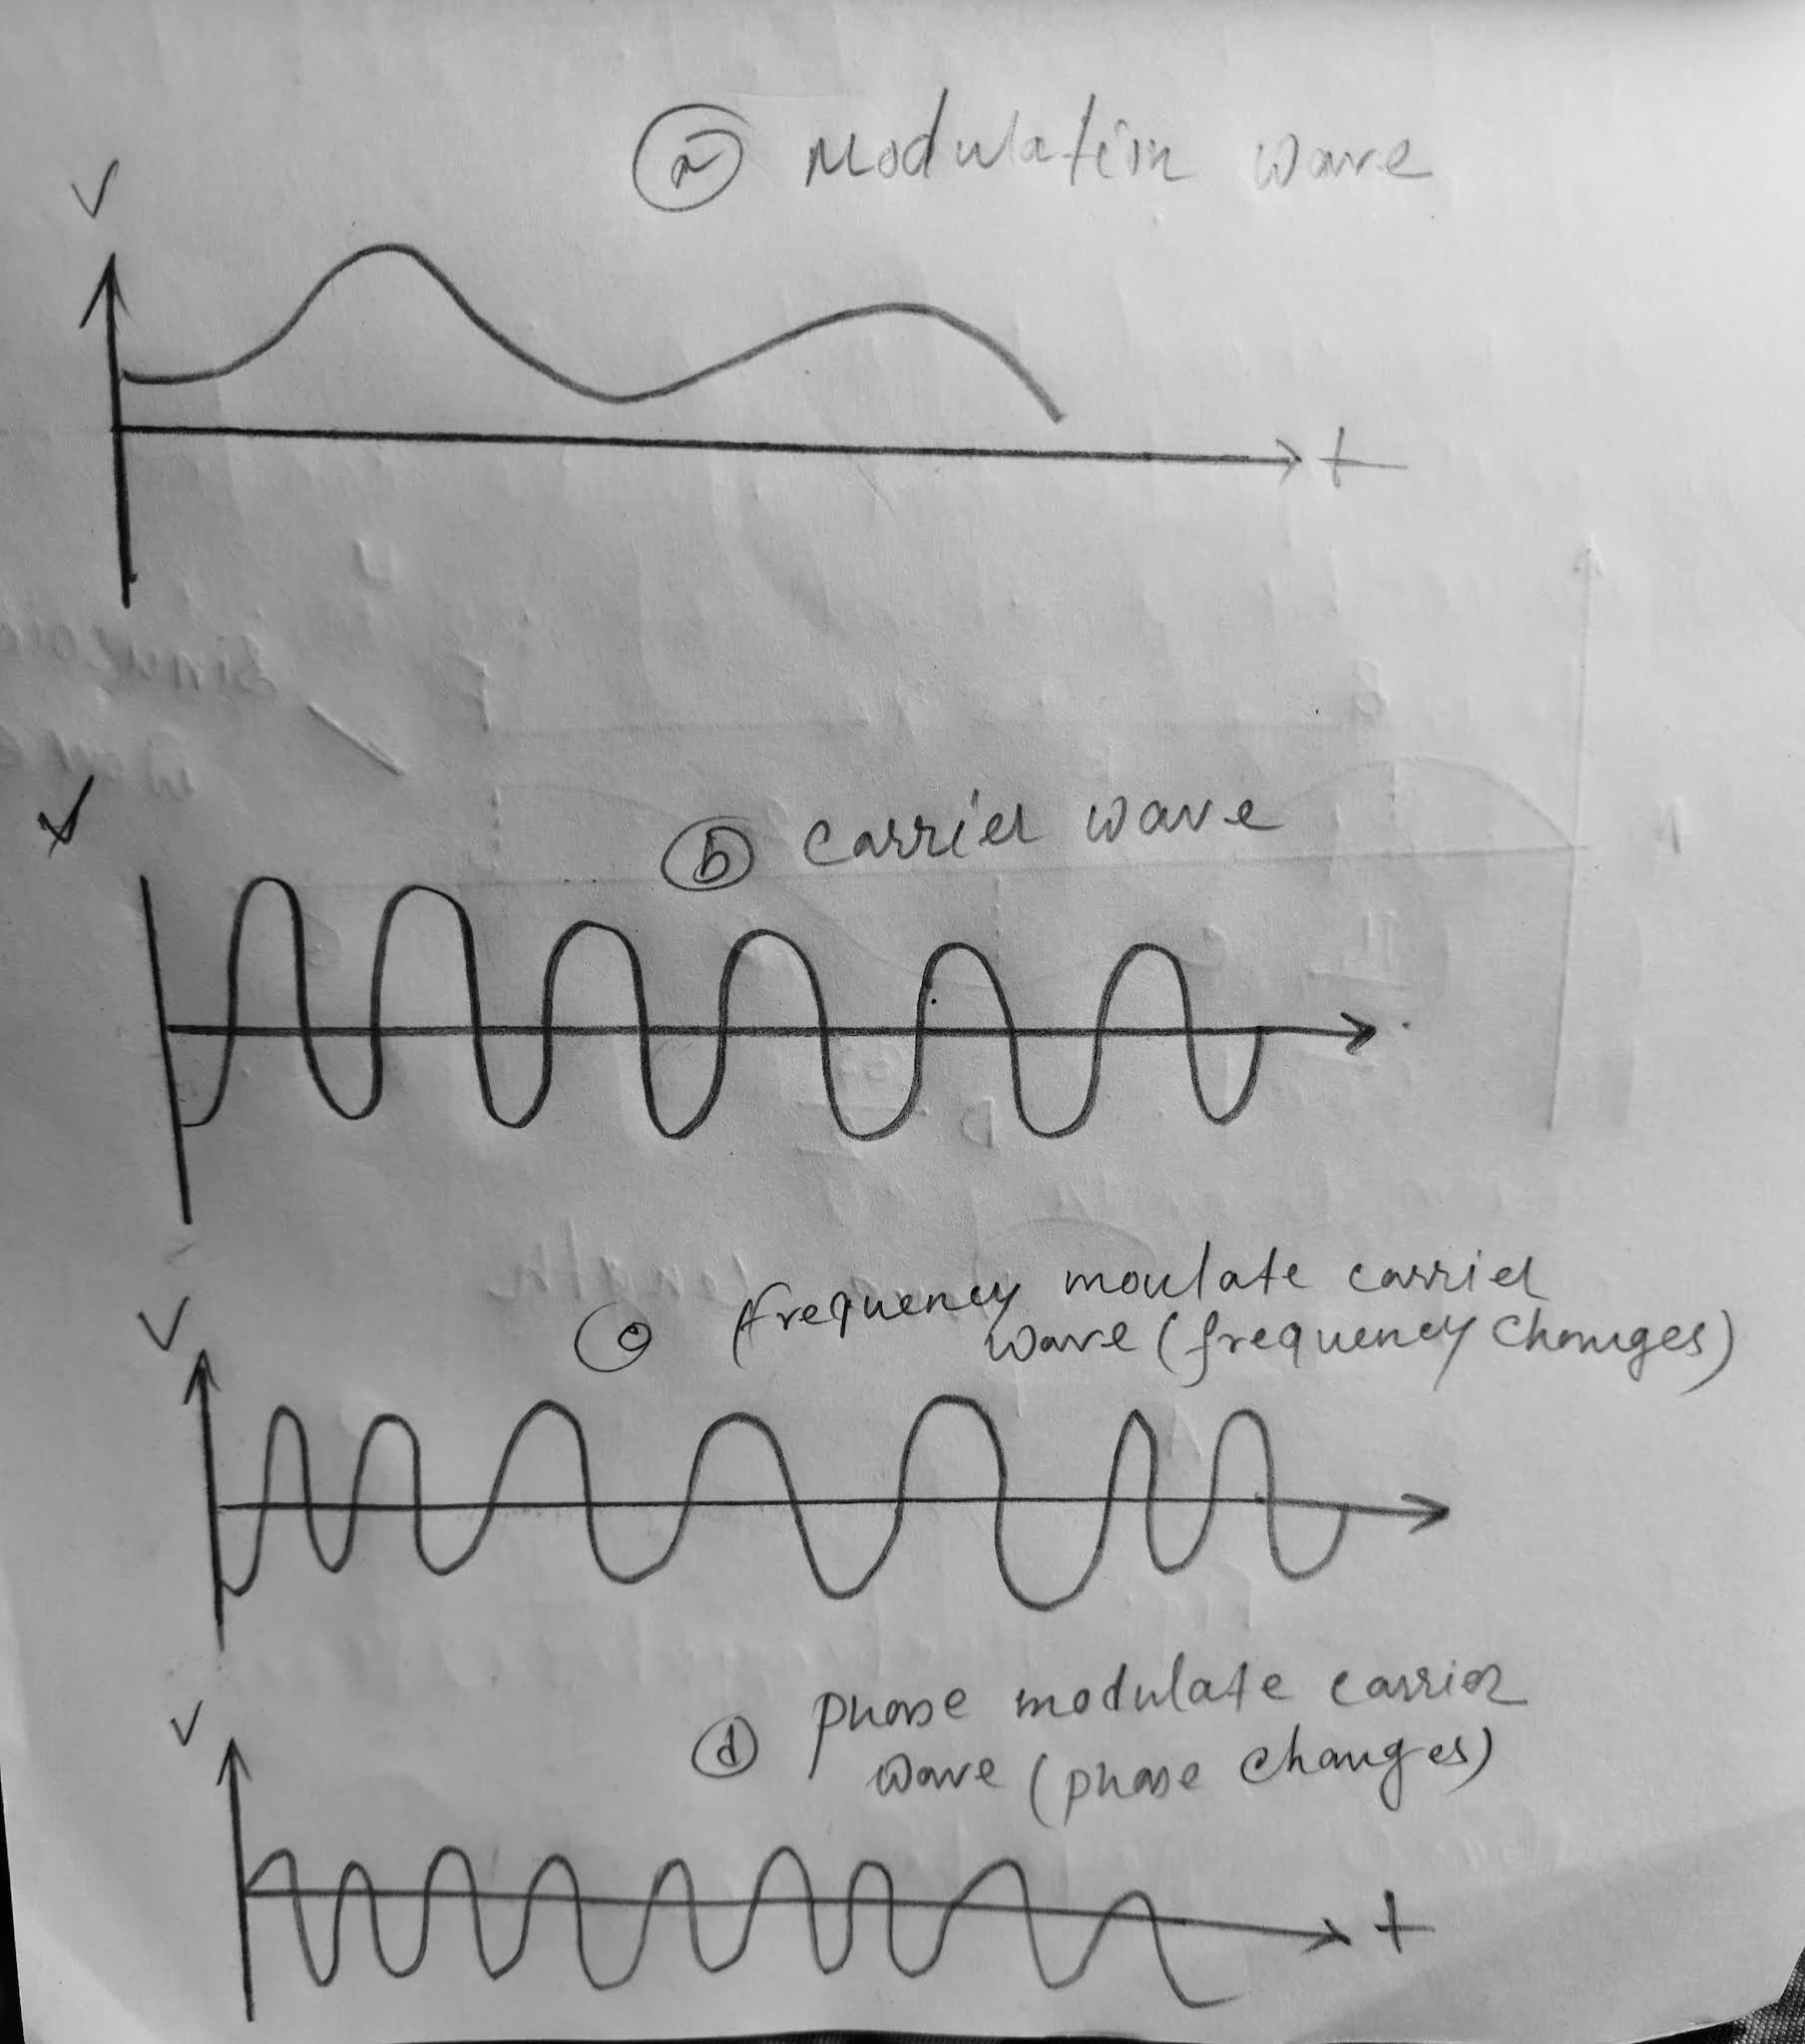 a Modulation wave
V
t
V
b Carrier wave
c frequency moulate carrier
wave (frequency changes)
V
d phase modulate carrier
wave (phase changes)
V
t